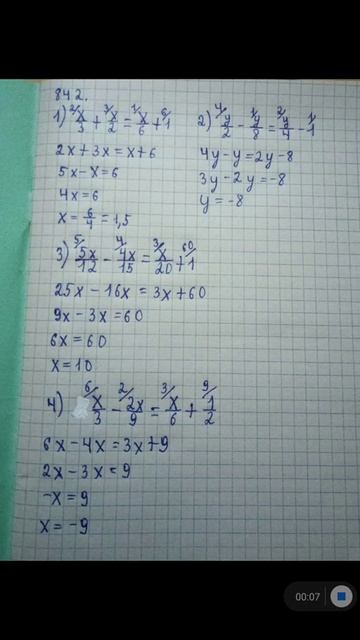 842.
1) ²/x/3 + ³/x/2 = ¹/x/6 + ⁶/1
2x + 3x = x + 6
5x - x = 6
4x = 6
x = 6/4 = 1,5
2) ⁴/y/2 - ¹/y/8 = ²/y/4 - ¹/1
4y - y = 2y - 8
3y - 2y = -8
y = -8
3) ⁵/5x/12 - ⁴/4x/15 = ³/x/20 + ⁶⁰/1
25x - 16x = 3x + 60
9x - 3x = 60
6x = 60
x = 10
4) ⁶/x/3 - ²/2x/9 = ³/x/6 + ⁹/1/2
6x - 4x = 3x + 9
2x - 3x = 9
-x = 9
x = -9
00:07